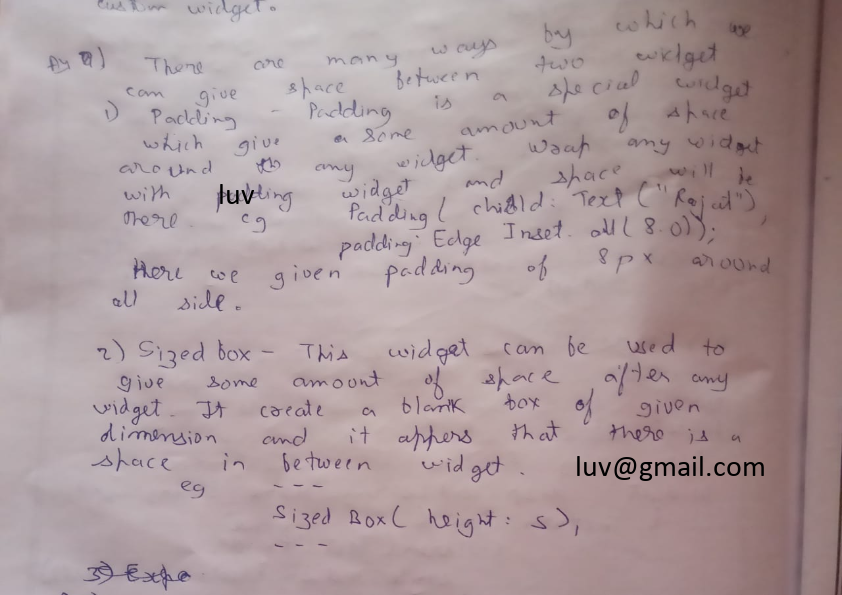 custom widget.
4) There are many ways by which we
can give space between two widget
1) Padding - Padding is a special widget
which give a some amount of space
around any widget. Wrap any widget
with luv widget and space will be
there. eg Padding( child: Text ("Rajat"),
padding: Edge Inset. all( 8.0));
Here we given padding of 8px around
all side.
2) Sized box - This widget can be used to
give some amount of space after any
widget. It create a blank box of given
dimension and it appers that there is a
space in between widget.
luv@gmail.com
eg - - -
Sized Box( height: 5),
- - -
3) Expa